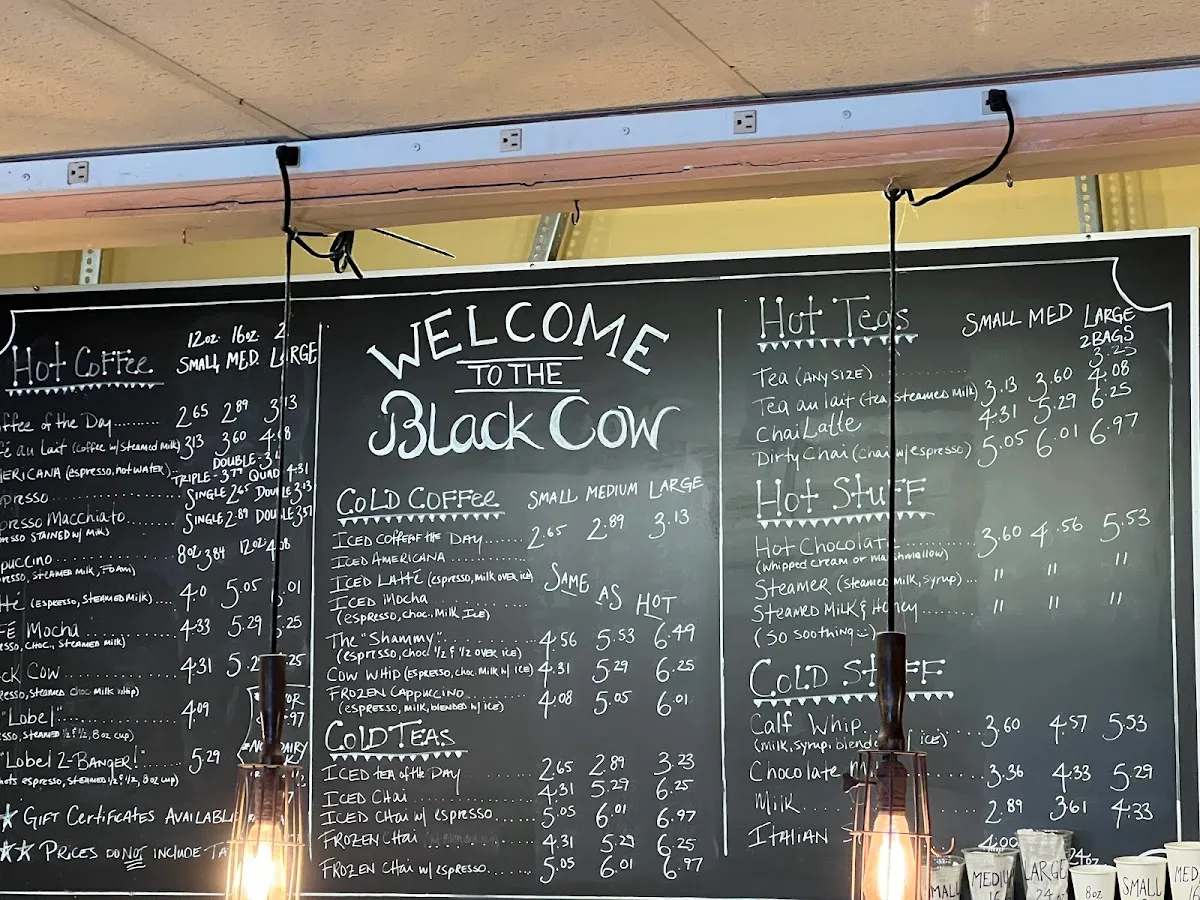 12oz. 16oz. 2
Hot Coffee SMALL MED. LARGE
ffee of the Day 2.65 2.89 3.13
fé au Lait (coffee w/steamed milk) 3.13 3.60 4.08
DOUBLE - 3.
ERICANA (espresso, hot water)
TRIPLE - 3.77 QUAD 4.31
presso SINGLE 2.65 DOUBLE 3.13
presso Macchiato SINGLE 2.89 DOUBLE 3.37
presso STAINED w/ milk)
puccino 8oz 3.84 12oz 4.08
resso, STEAMED MILK, FOAM)
tte (espresso, STEAMED MILK) 4.0 5.05 .01
FÉ Mocha 4.33 5.29 .25
esso, choc., STEAMED milk)
ck Cow 4.31 5.2 .25
resso, steamed choc milk whip)
"Lobel" 4.09
sso, STEAMED ½ & ½, 8 oz cup)
"Lobel 2-Banger!" 5.29
hots espresso, STEAMED ½ & ½, 8oz cup)
GIFT CERTIFICATES AVAILABL
PRICES DO NOT INCLUDE TA
WELCOME
TO THE
Black Cow
COLD COFFEE SMALL MEDIUM LARGE
ICED COFFEE OF THE DAY 2.65 2.89 3.13
ICED AMERICANA
ICED LATTE (espresso, milk over ice)
SAME AS HOT
ICED MOCHA
(espresso, choc., Milk Ice)
The "Shammy" 4.56 5.53 6.49
(espresso, choc. ½ & ½ OVER ICE)
COW WHIP (Espresso, choc. Milk w/ ICE) 4.31 5.29 6.25
FROZEN CAPPUCCINO 4.08 5.05 6.01
(espresso, milk, blended w/ ice)
COLD TEAS
ICED tea of the DAY 2.65 2.89 3.23
ICED Chai 4.31 5.29 6.25
ICED Chai w/ espresso 5.05 6.01 6.97
FROZEN Chai 4.31 5.29 6.25
FROZEN Chai w/ espresso 5.05 6.01 6.97
Hot Teas SMALL MED LARGE
2 BAGS
Tea (ANY SIZE) 3.25
Tea au lait (tea, steamed milk) 3.13 3.60 4.08
Chai Latte 4.31 5.29 6.25
Dirty Chai (chai w/ espresso) 5.05 6.01 6.97
Hot Stuff
Hot Chocolat 3.60 4.56 5.53
(whipped cream or marshmallow)
Steamer (steamed milk, syrup) " " "
Steamed Milk & Honey " " "
(So soothing :)
COLD STUFF
Calf Whip 3.60 4.57 5.53
(milk, syrup, blended ICE)
Chocolate M 3.36 4.33 5.29
Milk 2.89 3.61 4.33
ITALIAN S 4.00
MALL
MEDIU
16
LARGE
24oz
24oz
8oz
SMALL
MED
16